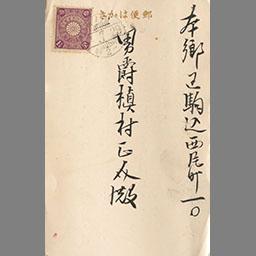 郵便はかき
本郷区駒込西片町一〇
男爵槙村正友殿